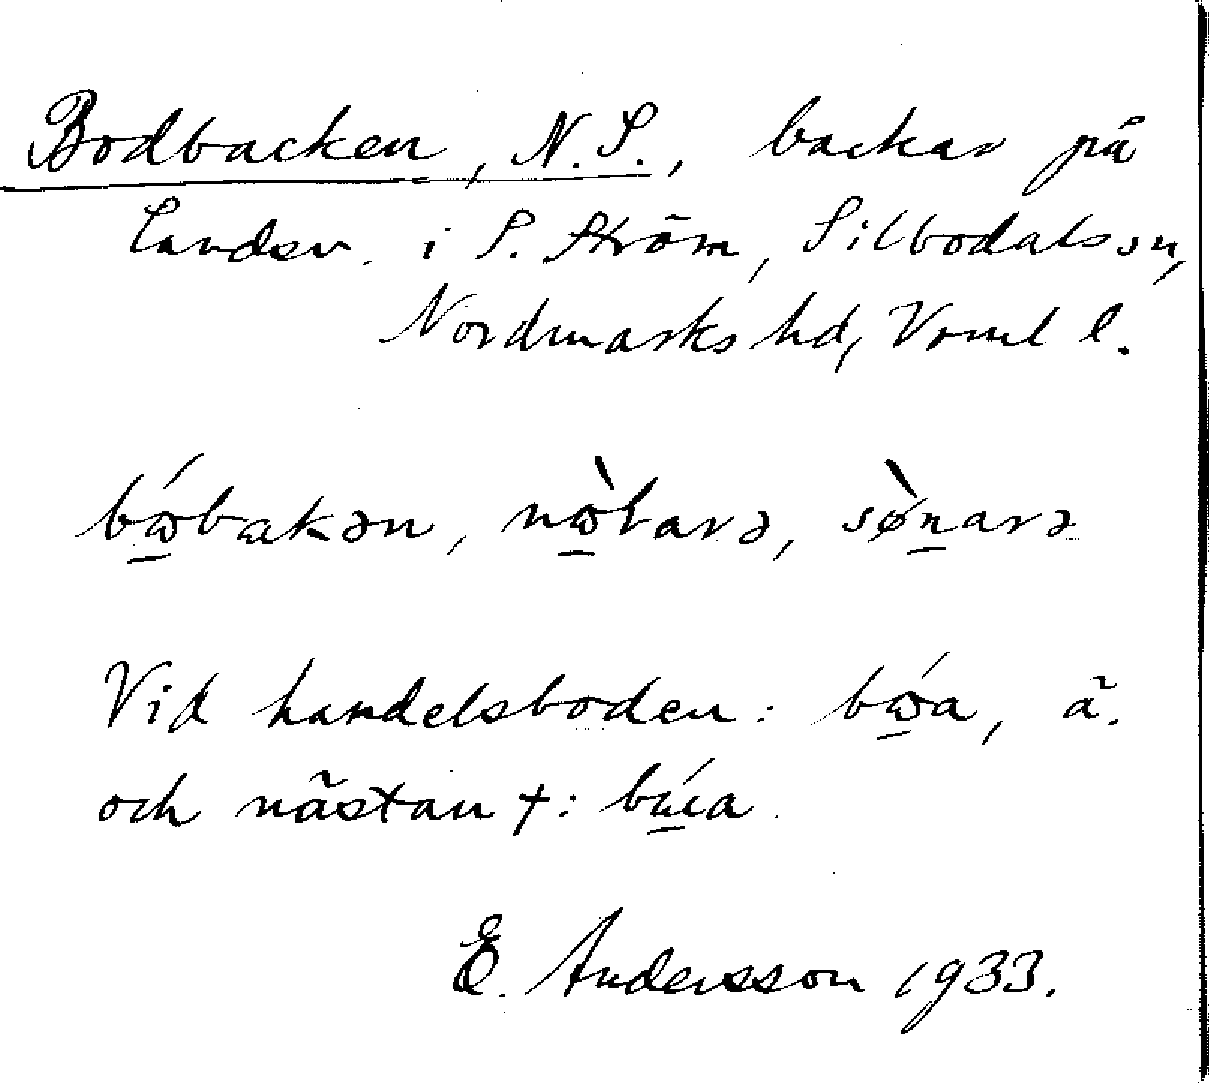 Bodbacken, N. S., backar på
Landsv. i S. Ström, Silbodals sn,
Nordmarks hd, Vrml l.
bǿbakən, nòlarə, sø̀narə
Vid handelsboden: , ä.
och nästan †: búa.
E. Andersson 1933.